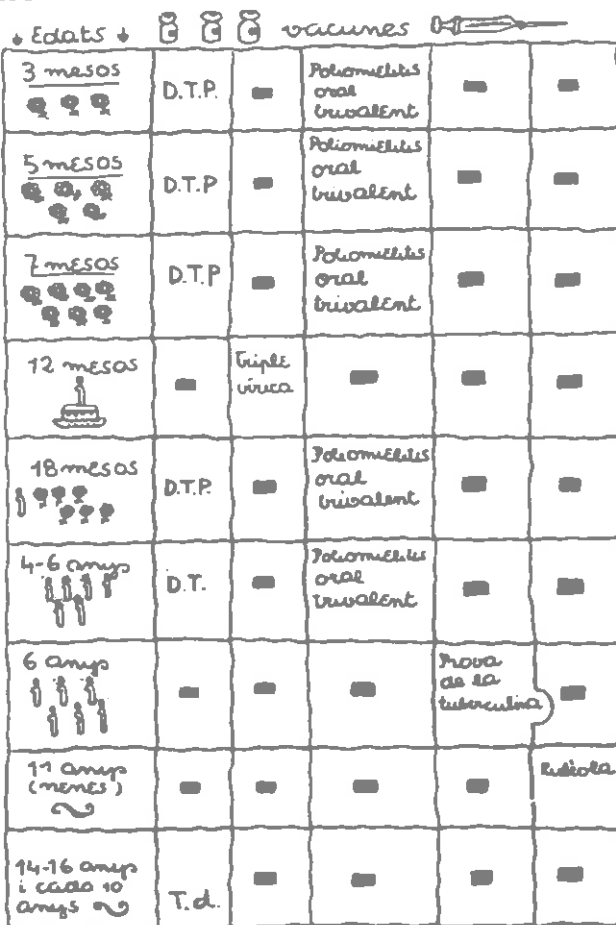 Edats vacunes
3 mesos
D.T.P.
Poliomielitis
oral
trivalent
5 mesos
D.T.P
Poliomielitis
oral
trivalent
7 mesos
D.T.P
Poliomielitis
oral
trivalent
12 mesos
Triple
vírica
18 mesos
D.T.P.
Poliomielitis
oral
trivalent
4-6 anys
D.T.
Poliomielitis
oral
trivalent
6 anys
Prova
de la
tuberculina
11 anys
(nenes)
Rubèola
14-16 anys
i cada 10
anys
T.d.